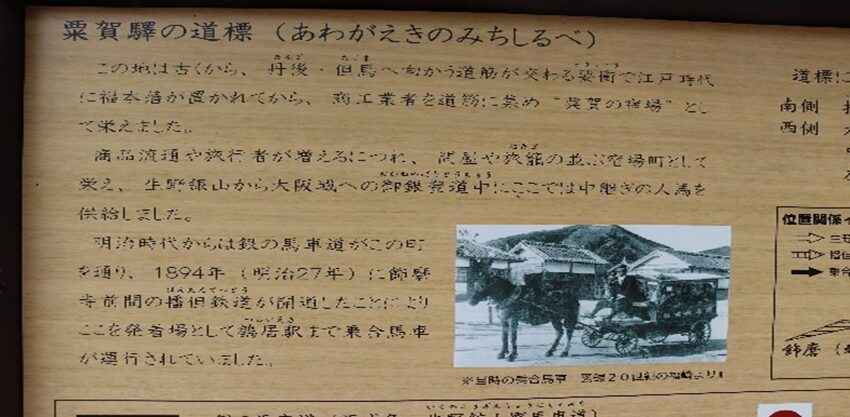 粟賀驛の道標（あわがえきのみちしるべ）
この地は古くから、丹後・但馬へ向かう道筋が交わる要衝で江戸時代
に福本藩が置かれてから、商工業者を道筋に集め“粟賀の宿場”とし
て栄えました。
商品流通や旅行者が増えるにつれ、問屋や旅籠の並ぶ宿場町として
栄え、生野銀山から大阪城への御銀登道中にここでは中継ぎの人馬を
供給しました。
明治時代からは銀の馬車道がこの町
を通り、1894年（明治27年）に飾磨
寺前間の播但鉄道が開通したことにより
ここを発着場として鶴居駅まで乗合馬車
が運行されていました。
※当時の乗合馬車
道標に
南側
西側
位置関係
飾磨（